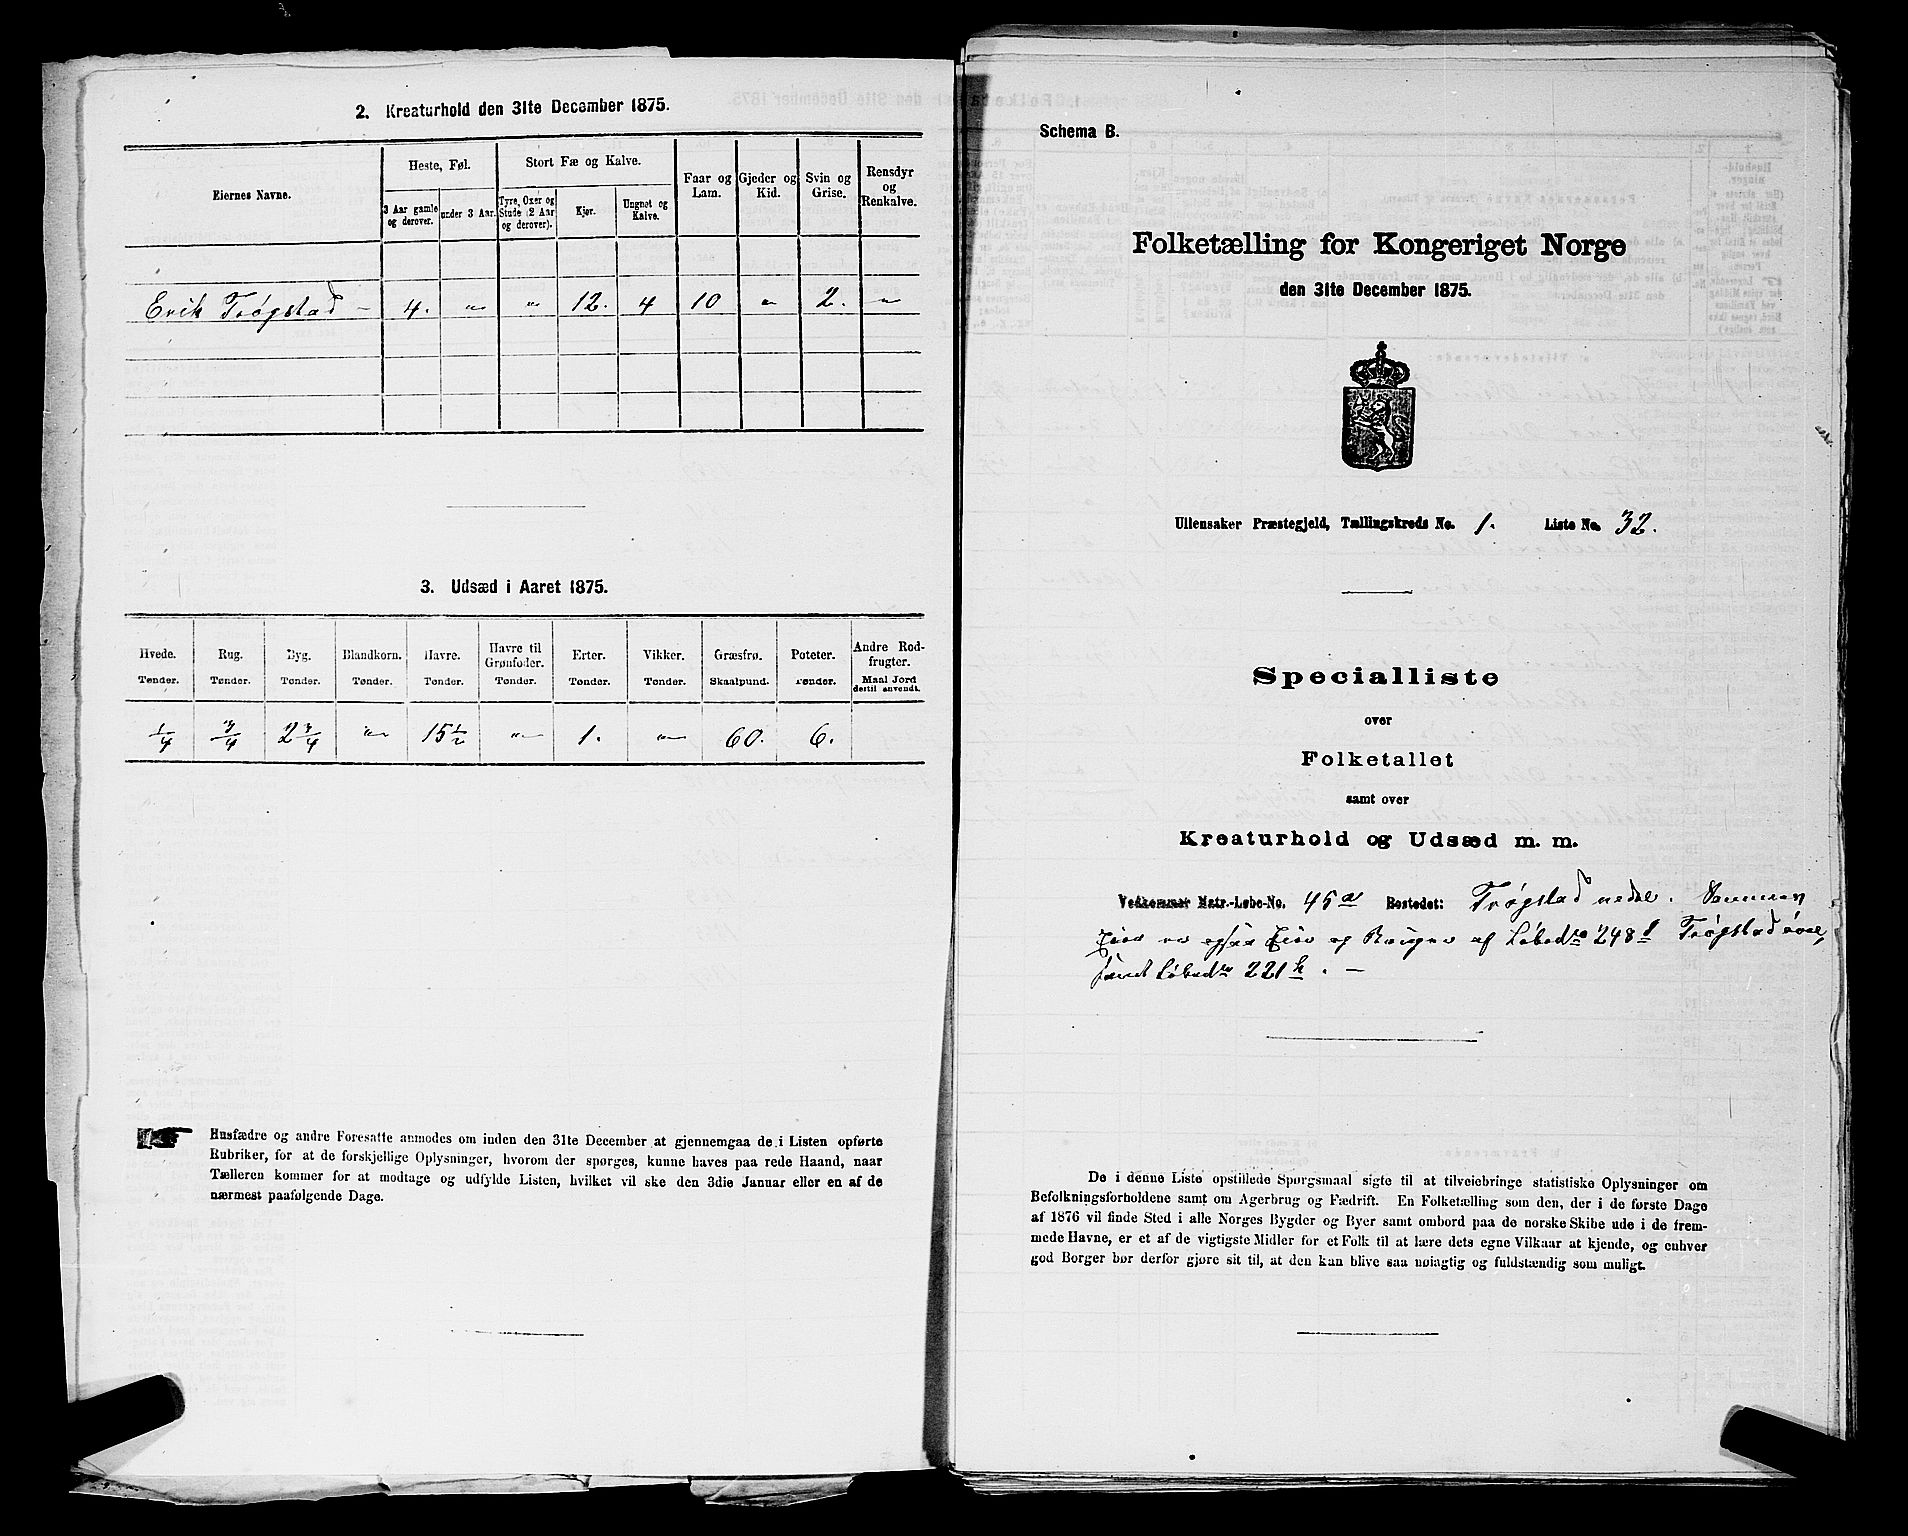 2. Kreaturhold den 31te December 1875.
Eiernes Navne.
Heste, Føl.
Stort Fæ og Kalve.
Faar og Lam.
Gjeder og Kid.
Svin og Grise.
Rensdyr og Renkalve.
3 Aar gamle og derover.
under 3 Aar.
Tyre, Oxer og Stude (2 Aar og derover).
Kjør.
Ungnøt og Kalve.
Erik Trøgstad – 4. " " 12. 4 10 " 2. "
3. Udsæd i Aaret 1875.
Hvede. Rug. Byg. Blandkorn. Havre. Havre til Grønfoder. Erter. Vikker. Græsfrø. Poteter. Andre Rodfrugter.
Tønder. Tønder. Tønder. Tønder. Tønder. Tønder. Tønder. Tønder. Skaalpund. Tønder. Maal Jord dertil anvendt.
1/4 3/4 2 3/4 " 15 1/2 " 1. " 60. 6.
Husfædre og andre Foresatte anmodes om inden den 31te December at gjennemgaa de i Listen opførte
Rubriker, for at de forskjellige Oplysninger, hvorom der spørges, kunne haves paa rede Haand, naar
Tælleren kommer for at modtage og udfylde Listen, hvilket vil ske den 3die Januar eller en af de
nærmest paafølgende Dage.
Schema B.
Folketælling for Kongeriget Norge
den 31te December 1875.
Ullensaker Præstegjeld, Tællingskreds No. 1. Liste No. 32.
Specialliste
over
Folketallet
samt over
Kreaturhold og Udsæd m. m.
Vedkommer Matr.-Løbe-No. 45a Bostedet: Trøgstad nedre. Samme
Eier er også Eier og Bruger af Løbeno 248 Trøgstad øvre,
samt Løbeno 221 b. –
De i denne Liste opstillede Spørgsmaal sigte til at tilveiebringe statistiske Oplysninger om
Befolkningsforholdene samt om Agerbrug og Fædrift. En Folketælling som den, der i de første Dage
af 1876 vil finde Sted i alle Norges Bygder og Byer samt ombord paa de norske Skibe ude i de frem-
mede Havne, er et af de vigtigste Midler for et Folk til at lære dets egne Vilkaar at kjende, og enhver
god Borger bør derfor gjøre sit til, at den kan blive saa nøiagtig og fuldstændig som muligt.